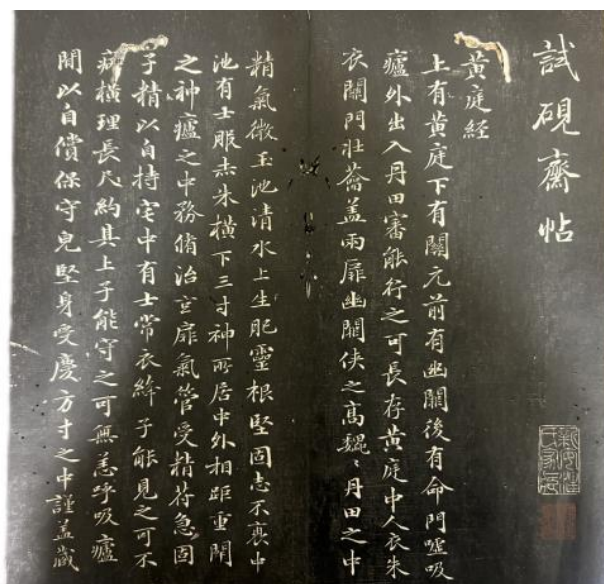 試硯齋帖
黃庭経
上有黃庭下有關元前有幽關後有命門噓吸
廬外出入丹田審能行之可長存黃庭中人衣朱
衣關門壯蘥盖兩扉幽關俠之髙巍〻丹田之中
精氣微玉池清水上生肥靈根堅固志不衰中
池有士服赤朱橫下三寸神所居中外相距重閇
之神廬之中務脩治玄扉氣管受精符急固
子精以自持宅中有士常衣絳子能見之可不
病橫理長尺約其上子能守之可無恙呼吸廬
閒以自償保守皃堅身受慶方寸之中謹盖藏